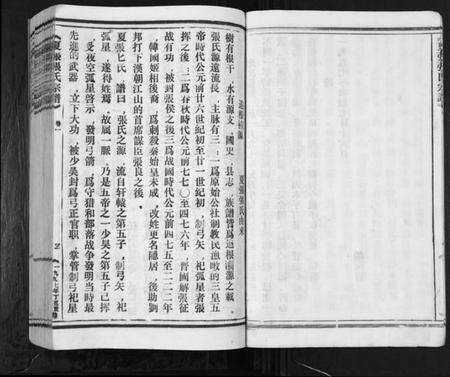 樹有根干，水有源支，國史，县志，族譜皆爲追根溯源之载，
張氏源遠流長，主脉有三：一爲原始公社制教民漁畋的三皇五
帝時代公元前廿六世紀初至廿一世紀初，制弓矢，祀弧星者張
挥之後；二爲春秋時代公元前七七〇至四七六年，晋國解張征
战有功，被封張侯之後三爲战國時代公元前四七五至二二二年
韓國姬相後裔，爲刺殺秦始皇未成，改姓更名隱居，後助劉
邦打下漢朝江山的首席謀臣張良之後。
夏張七氏，譜曰，張氏之源，流自轩辕之第五子，制弓矢，祀
弧星，遂得姓焉，故属一脈，乃是五帝之一少昊之第五子已挥
受夜空弧星启示，發明弓箭，爲守猎和部落战争發明当時最
先進的武器，立下大功，被少昊封爲弓正官职，掌管制弓祀星
《夏張張氏宗譜》
卷一
三